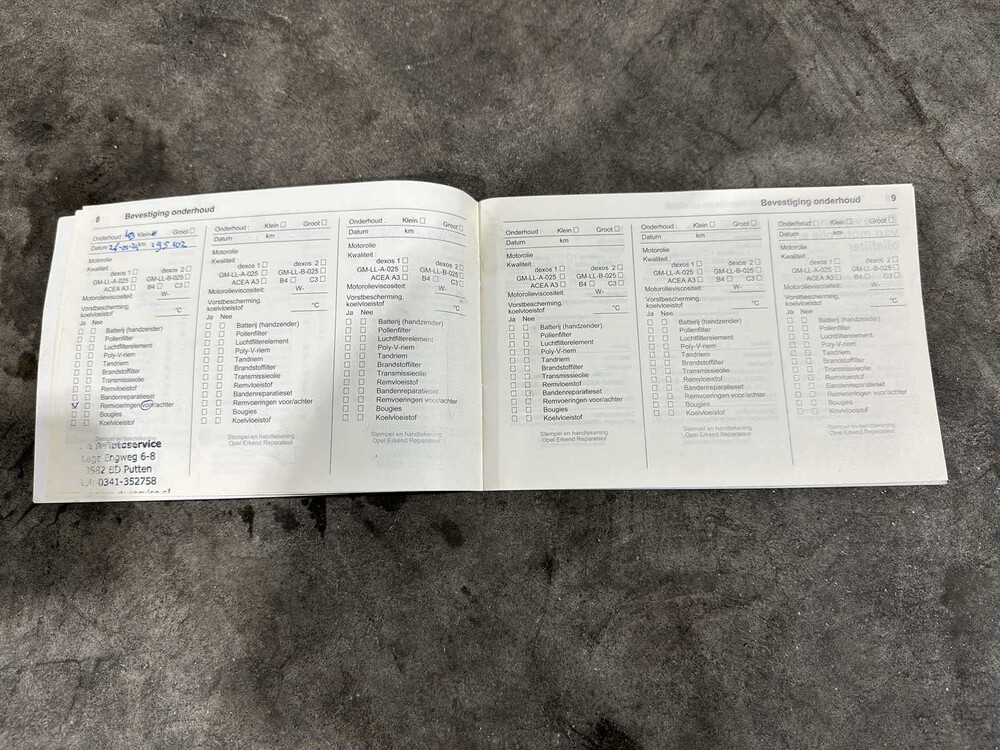 8 Bevestiging onderhoud
Onderhoud : Klein Groot
Datum km 195 402
Motorolie
Kwaliteit :
dexos 1 dexos 2
GM-LL-A-025 GM-LL-B-025
ACEA A3 B4 C3
Motorolieviscositeit: W-
Vorstbescherming,
koelvloeistof °C
Ja Nee
Batterij (handzender)
Pollenfilter
Luchtfilterelement
Poly-V-riem
Tandriem
Brandstoffilter
Transmissieolie
Remvloeistof
Bandenreparatieset
Remvoeringen voor/achter
Bougies
Koelvloeistof
Stempel en handtekening
Autoservice
Engweg 6-8
3882 BD Putten
0341-352758
Onderhoud : Klein Groot
Datum km
Motorolie
Kwaliteit :
dexos 1 dexos 2
GM-LL-A-025 GM-LL-B-025
ACEA A3 B4 C3
Motorolieviscositeit: W-
Vorstbescherming,
koelvloeistof °C
Ja Nee
Batterij (handzender)
Pollenfilter
Luchtfilterelement
Poly-V-riem
Tandriem
Brandstoffilter
Transmissieolie
Remvloeistof
Bandenreparatieset
Remvoeringen voor/achter
Bougies
Koelvloeistof
Stempel en handtekening
Opel Erkend Reparateur
Onderhoud : Klein Groot
Datum km
Motorolie
Kwaliteit :
dexos 1 dexos 2
GM-LL-A-025 GM-LL-B-025
ACEA A3 B4 C3
Motorolieviscositeit: W-
Vorstbescherming,
koelvloeistof °C
Ja Nee
Batterij (handzender)
Pollenfilter
Luchtfilterelement
Poly-V-riem
Tandriem
Brandstoffilter
Transmissieolie
Remvloeistof
Bandenreparatieset
Remvoeringen voor/achter
Bougies
Koelvloeistof
Stempel en handtekening
Opel Erkend Reparateur
Bevestiging onderhoud 9
Onderhoud : Klein Groot
Datum km
Motorolie
Kwaliteit :
dexos 1 dexos 2
GM-LL-A-025 GM-LL-B-025
ACEA A3 B4 C3
Motorolieviscositeit: W-
Vorstbescherming,
koelvloeistof °C
Ja Nee
Batterij (handzender)
Pollenfilter
Luchtfilterelement
Poly-V-riem
Tandriem
Brandstoffilter
Transmissieolie
Remvloeistof
Bandenreparatieset
Remvoeringen voor/achter
Bougies
Koelvloeistof
Stempel en handtekening
Opel Erkend Reparateur
Onderhoud : Klein Groot
Datum km
Motorolie
Kwaliteit :
dexos 1 dexos 2
GM-LL-A-025 GM-LL-B-025
ACEA A3 B4 C3
Motorolieviscositeit: W-
Vorstbescherming,
koelvloeistof °C
Ja Nee
Batterij (handzender)
Pollenfilter
Luchtfilterelement
Poly-V-riem
Tandriem
Brandstoffilter
Transmissieolie
Remvloeistof
Bandenreparatieset
Remvoeringen voor/achter
Bougies
Koelvloeistof
Stempel en handtekening
Opel Erkend Reparateur
Onderhoud : Klein Groot
Datum km
Motorolie
Kwaliteit :
dexos 1 dexos 2
GM-LL-A-025 GM-LL-B-025
ACEA A3 B4 C3
Motorolieviscositeit: W-
Vorstbescherming,
koelvloeistof °C
Ja Nee
Batterij (handzender)
Pollenfilter
Luchtfilterelement
Poly-V-riem
Tandriem
Brandstoffilter
Transmissieolie
Remvloeistof
Bandenreparatieset
Remvoeringen voor/achter
Bougies
Koelvloeistof
Stempel en handtekening
Opel Erkend Reparateur